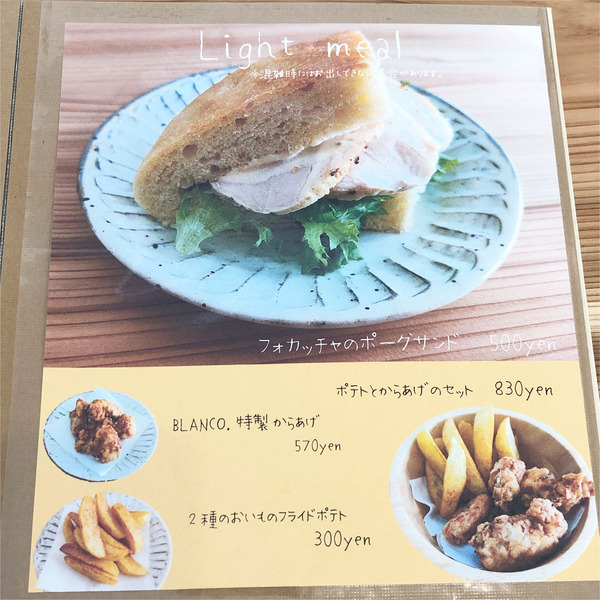 Light meal
※混雑時にはお出しできない場合があります。
フォカッチャのポーグサンド 500yen
ポテトとからあげのセット 830yen
BLANCO. 特製からあげ
570yen
2種のおいものフライドポテト
300yen